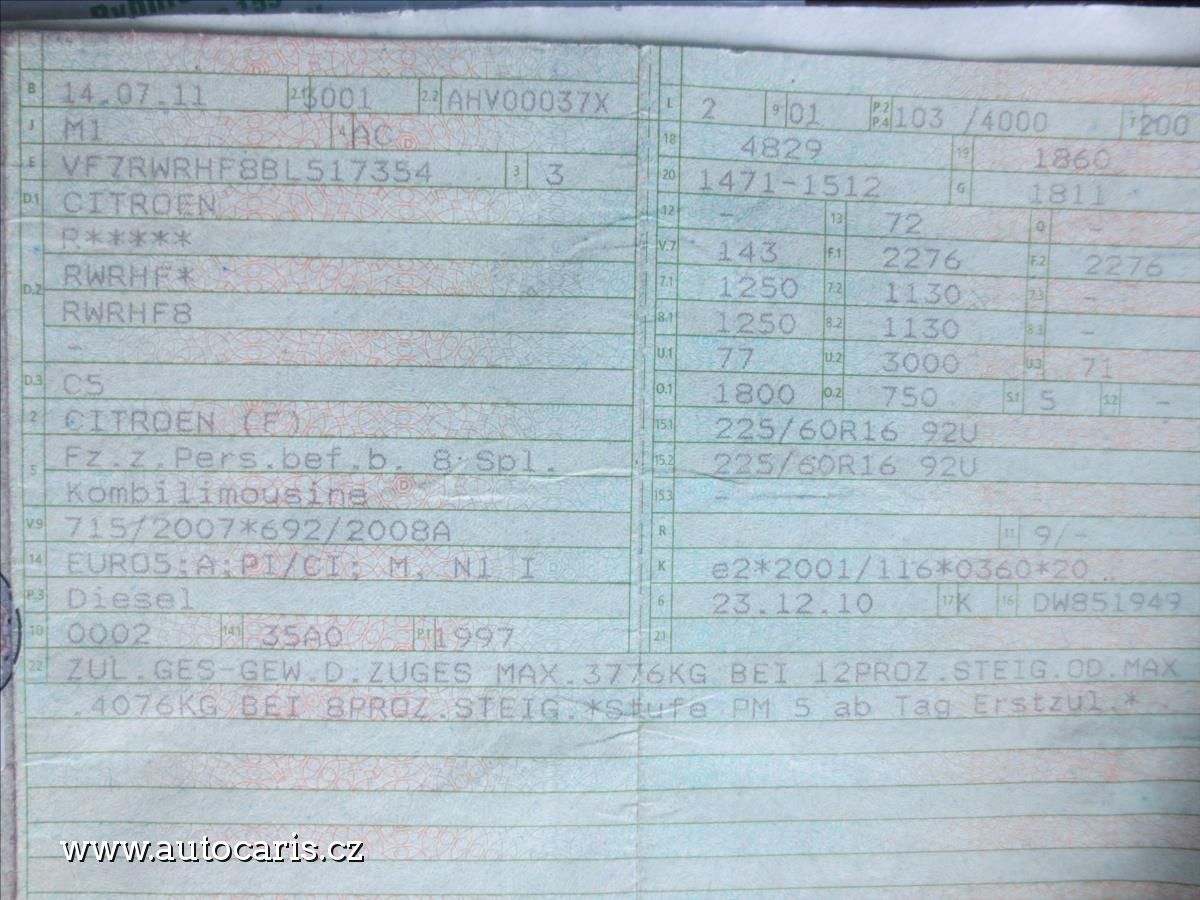 B 14.07.11 2.1 3001 2.2 AHV00037X
J M1 4 AC
E VF7RWRHF8BL517354 3 3
D.1 CITROEN
R*****
D.2 RWRHF*
RWRHF8
-
D.3 C5
2 CITROEN (F)
5 Fz.z.Pers.bef.b. 8 Spl.
Kombilimousine
V.9 715/2007*692/2008A
14 EURO5;A;PI/CI; M, N1 I
P.3 Diesel
10 0002 14.1 35A0 P.1 1997
L 2 9 01 P.2 P.4 103 /4000 T 200
18 4829 19 1860
20 1471-1512 G 1811
12 - 13 72 Q -
V.7 143 F.1 2276 F.2 2276
7.1 1250 7.2 1130 7.3 -
8.1 1250 8.2 1130 8.3 -
U.1 77 U.2 3000 U.3 71
O.1 1800 O.2 750 S.1 5 S.2 -
15.1 225/60R16 92U
15.2 225/60R16 92U
15.3 -
R 11 9/-
K e2*2001/116*0360*20
6 23.12.10 17 K 16 DW851949
21
22 ZUL.GES-GEW.D.ZUGES MAX.3776KG BEI 12PROZ.STEIG.OD.MAX
.4076KG BEI 8PROZ.STEIG.*Stufe PM 5 ab Tag Erstzul.*
www.autocaris.cz